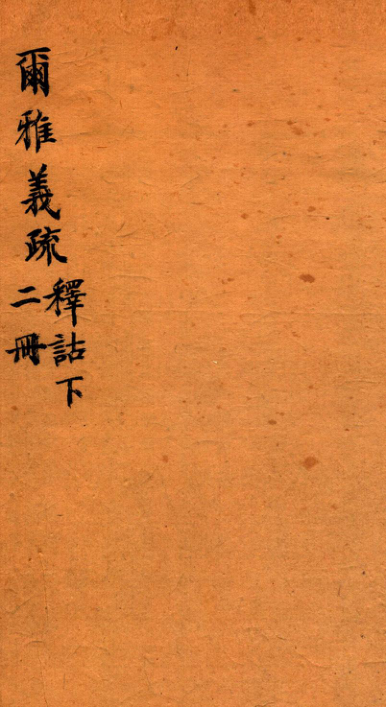 爾雅義疏
釋詁下
二冊